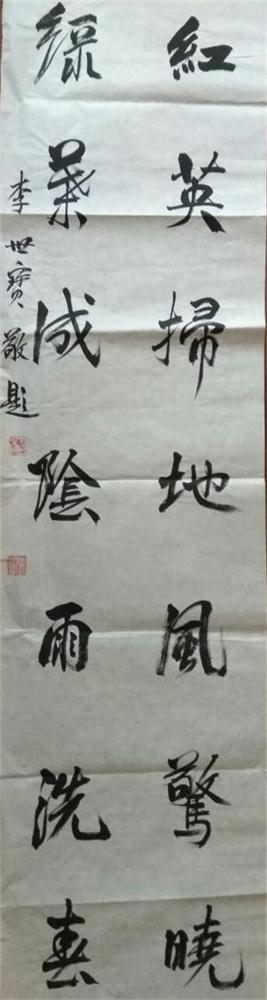 紅英掃地風驚曉
綠葉成陰雨洗春
李世寶敬題